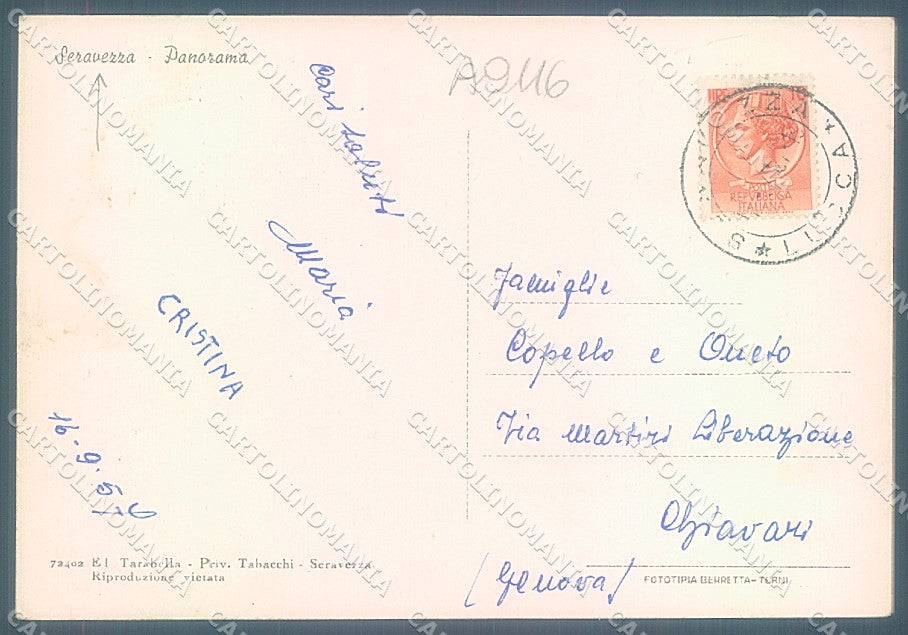 Seravezza - Panorama
A2116
Cari saluti
Maria
CRISTINA
16.9.56
POSTE
REPVBBLICA
ITALIANA
LUCCA
Famiglie
Copello e Oneto
Via Martiri Liberazione
Chiavari
(Genova)
72402 E I Tarabella - Priv. Tabacchi - Seravezza
Riproduzione vietata
FOTOTIPIA BERRETTA - TERNI
CARTOLINOMANIA